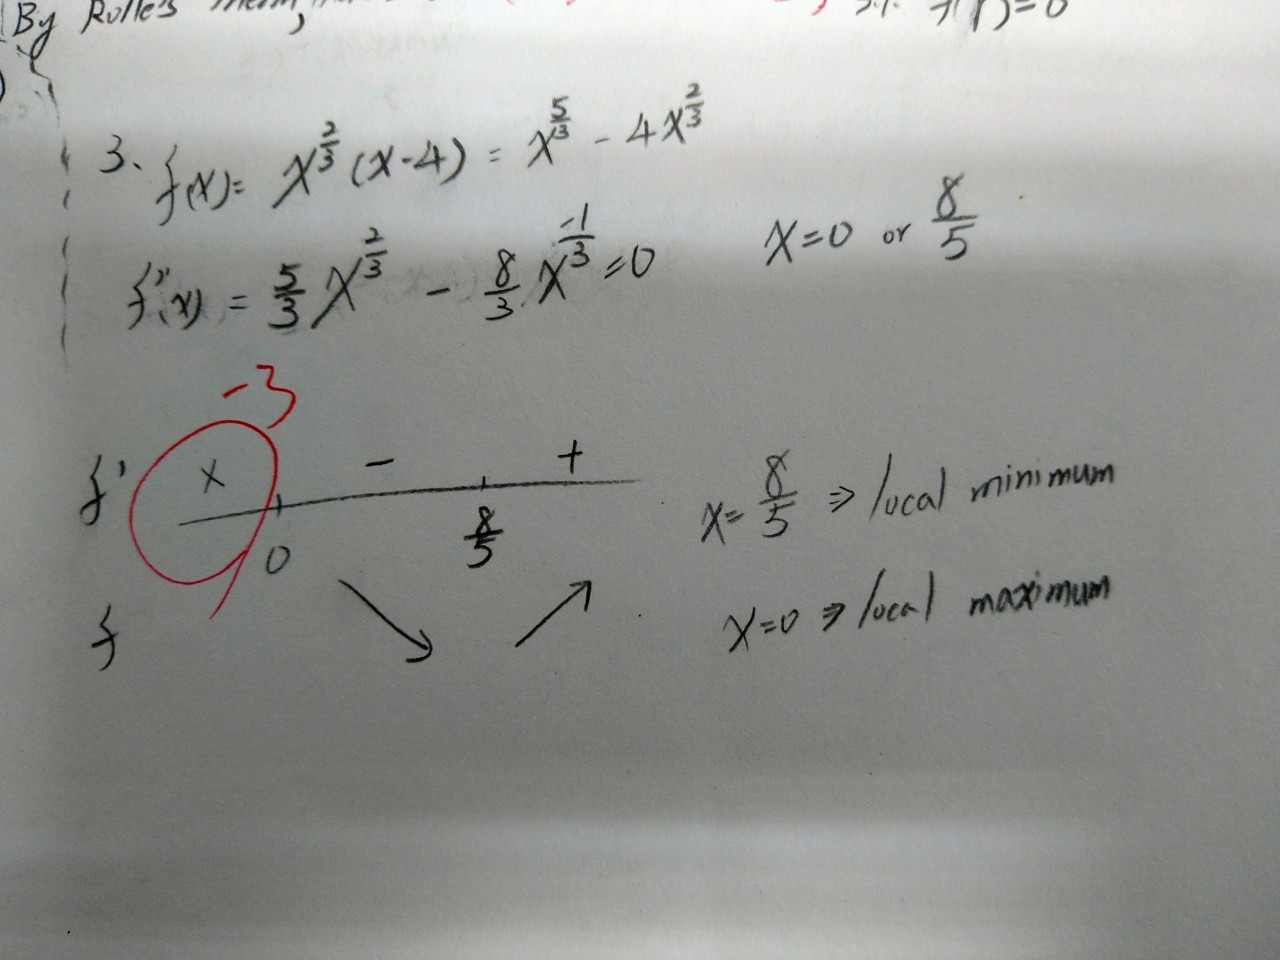 By Rolle's
3. f(x) = x^{2/3} (x-4) = x^{5/3} - 4x^{2/3}
f'(x) = 5/3 x^{2/3} - 8/3 x^{-1/3} = 0    x=0 or 8/5
-3
f' x - +
0 8/5
x = 8/5 ⇒ local minimum
f ↘ ↗
x=0 ⇒ local maximum